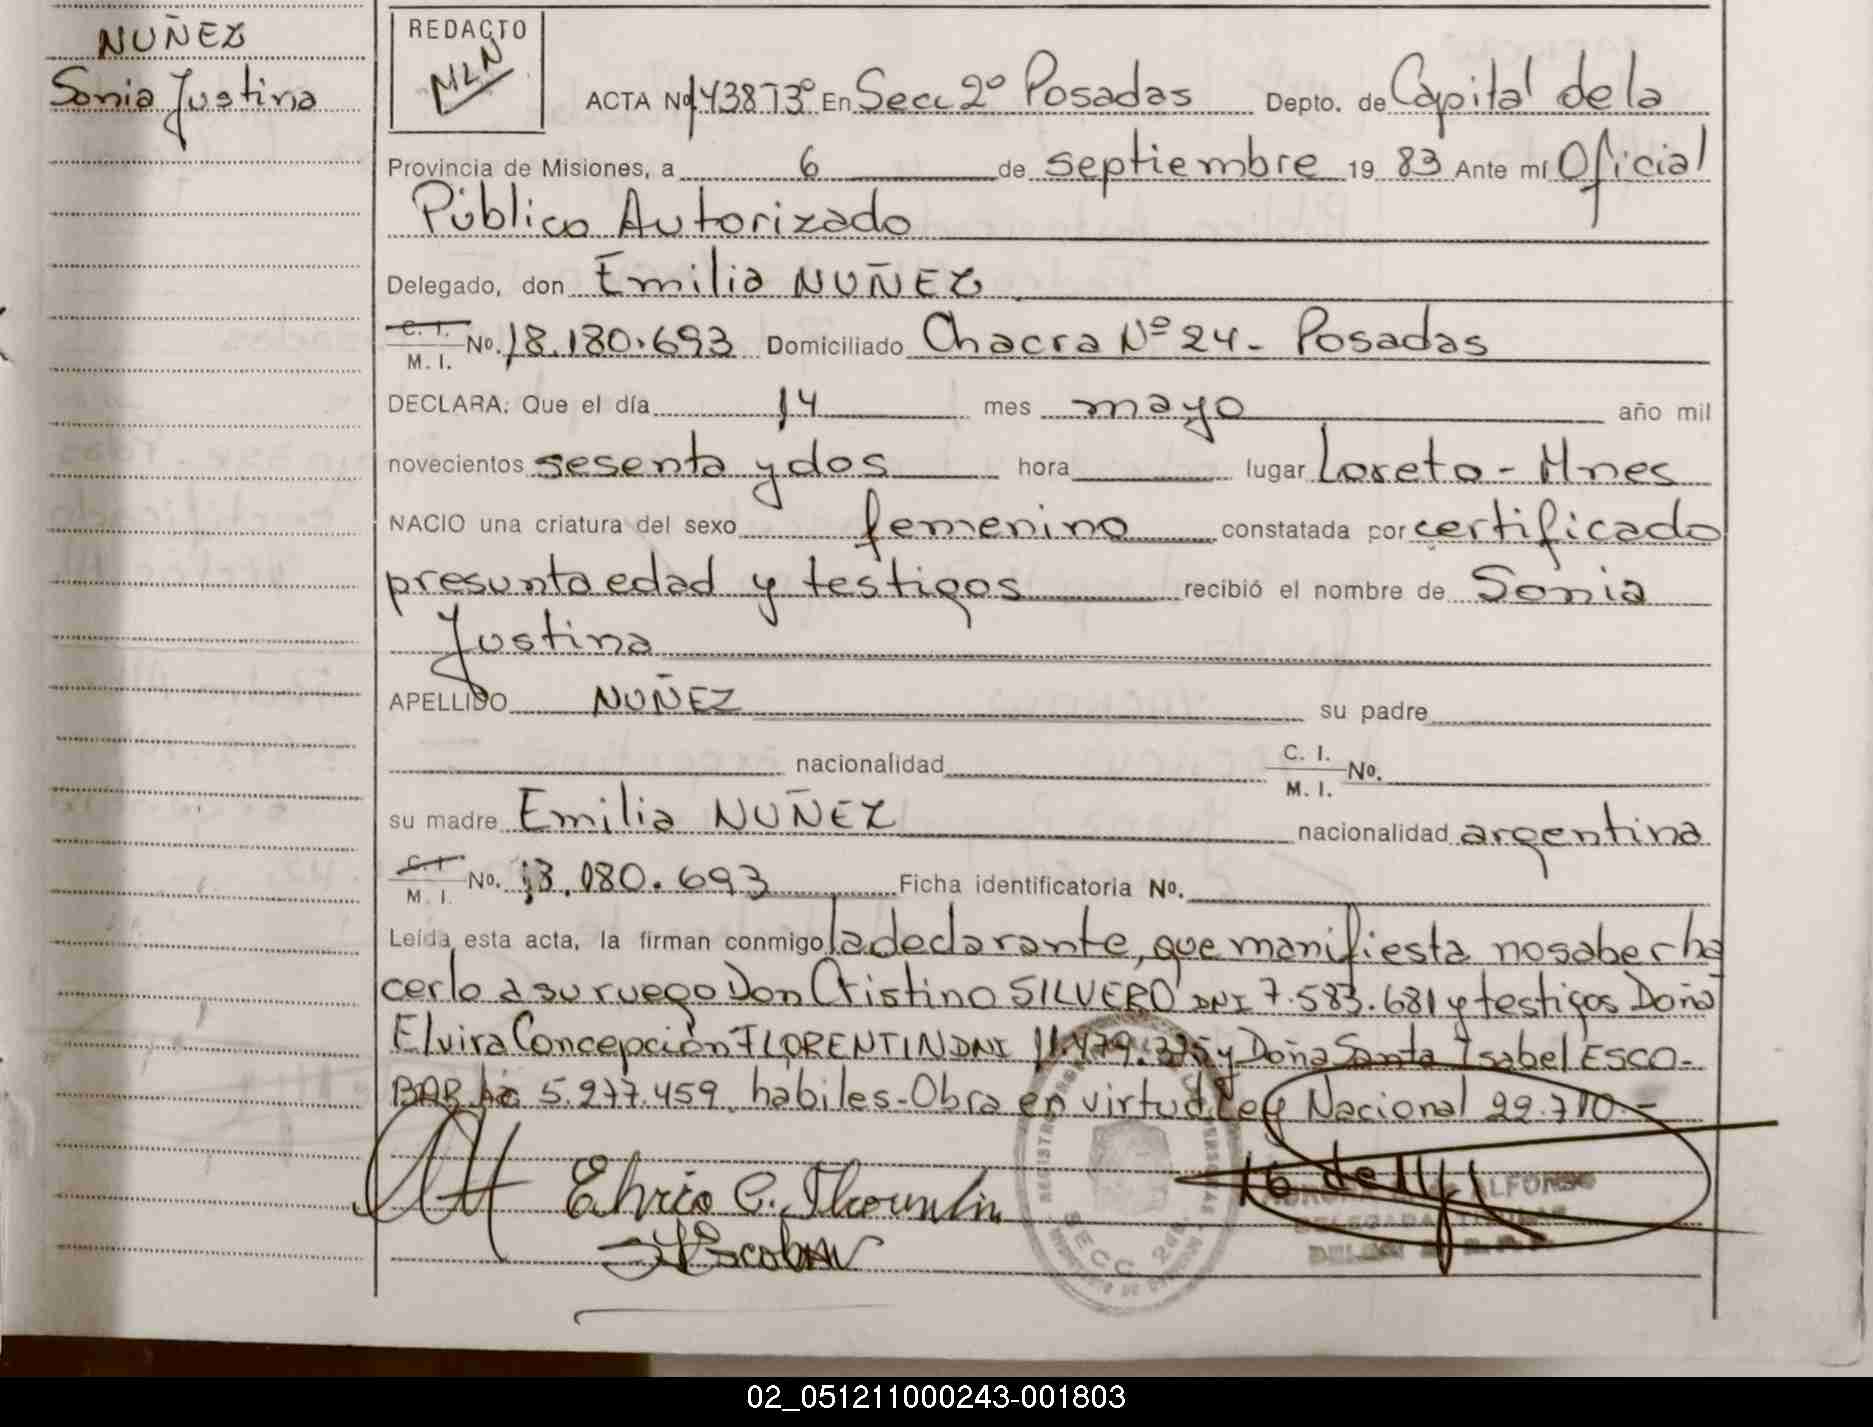 NUÑEZ
Sonia Justina
REDACTO
MLN
ACTA No 143873° En Secc 2° Posadas Depto. de Capital de la
Provincia de Misiones, a 6 de septiembre 19 83 Ante mí Oficial
Público Autorizado
Delegado, don Emilia NUÑEZ
C. I.
M. I. No. 18.180.693 Domiciliado Chacra Nº 24 - Posadas
DECLARA: Que el día 14 mes mayo año mil
novecientos sesenta y dos hora lugar Loreto - Mnes
NACIO una criatura del sexo femenino constatada por certificado
presunta edad y testigos recibió el nombre de Sonia
Justina
APELLIDO NUÑEZ su padre
nacionalidad C. I.
M. I. No.
su madre Emilia NUÑEZ nacionalidad argentina
C. I.
M. I. No. 180.693 Ficha identificatoria No.
Leída esta acta, la firman conmigo la declarante, que manifiesta no saber ha
cerlo a su ruego Don Cristino SILVERO DNI 7.583.681 y testigos Doña
Elvira Concepción FLORENTIN DNI y Doña Santa Isabel ESCO-
BAR 5.277.459 habiles - Obra en virtud Ley Nacional 22.710.-
Elvira C. Florentin
Escobar
SECC 2da
ALFONSO
02_051211000243-001803